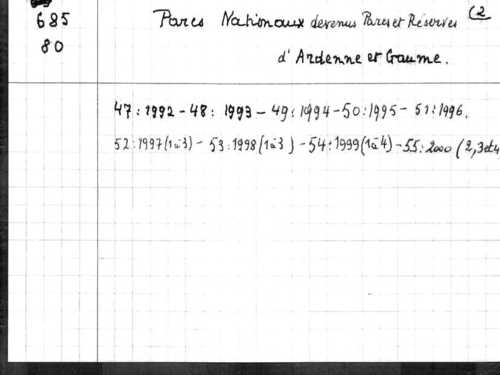 685 Parcs Nationaux devenus Parcs et Réserves (2
80 d'Ardenne et Gaume.
47:1992-48:1993-49:1994-50:1995-51:1996.
52:1997(1à3)-53:1998(1à3)-54:1999(1à4)-55:2000(2,3et4